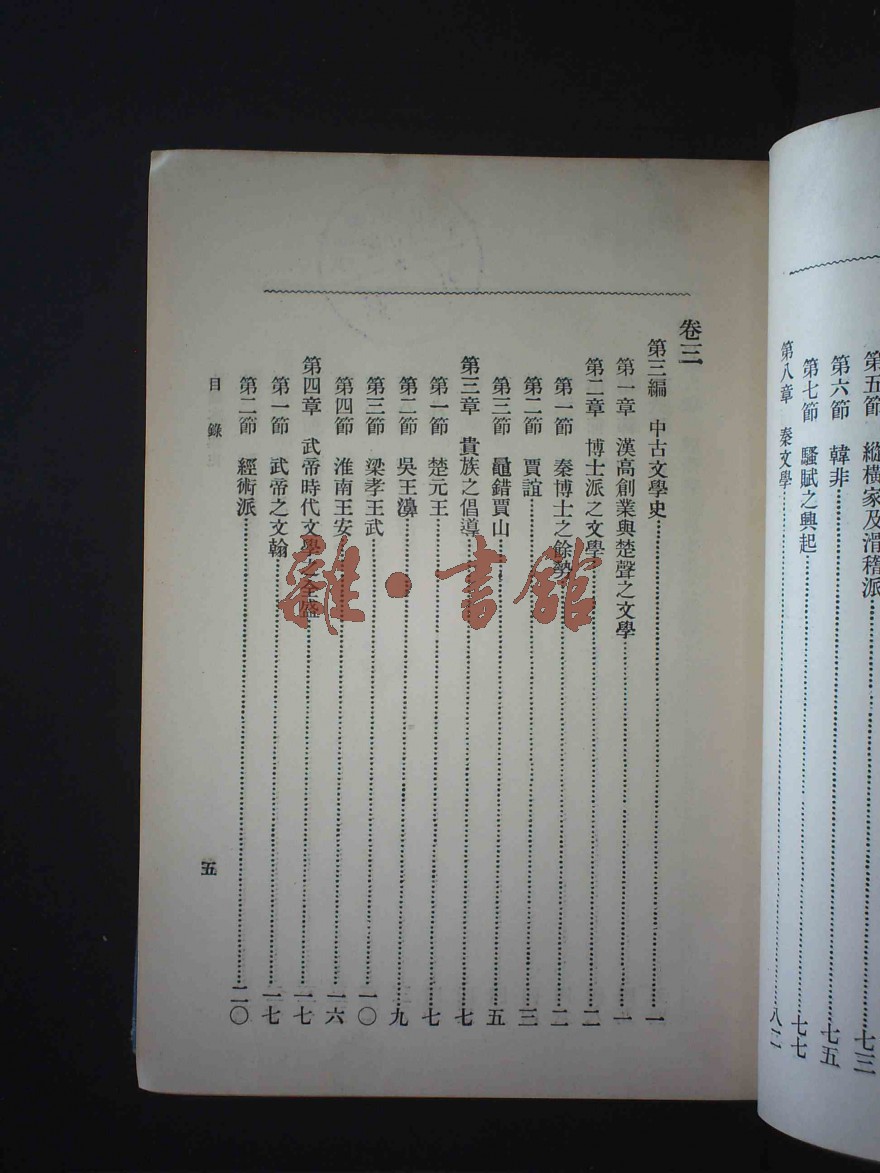 第五節　縱橫家及滑稽派……七三
第六節　韓非……七五
第七節　騷賦之興起……七七
第八章　秦文學……八二
卷三
第三編　中古文學史……一
第一章　漢高創業與楚聲之文學……一
第二章　博士派之文學……二
第一節　秦博士之餘勢……二
第二節　賈誼……三
第三節　鼂錯賈山……五
第三章　貴族之倡導……七
第一節　楚元王……七
第二節　吳王濞……九
第三節　梁孝王武……一〇
第四節　淮南王安……一六
第四章　武帝時代文學之全盛……一七
第一節　武帝之文翰……一七
第二節　經術派……二〇
目錄
五
雜·書館